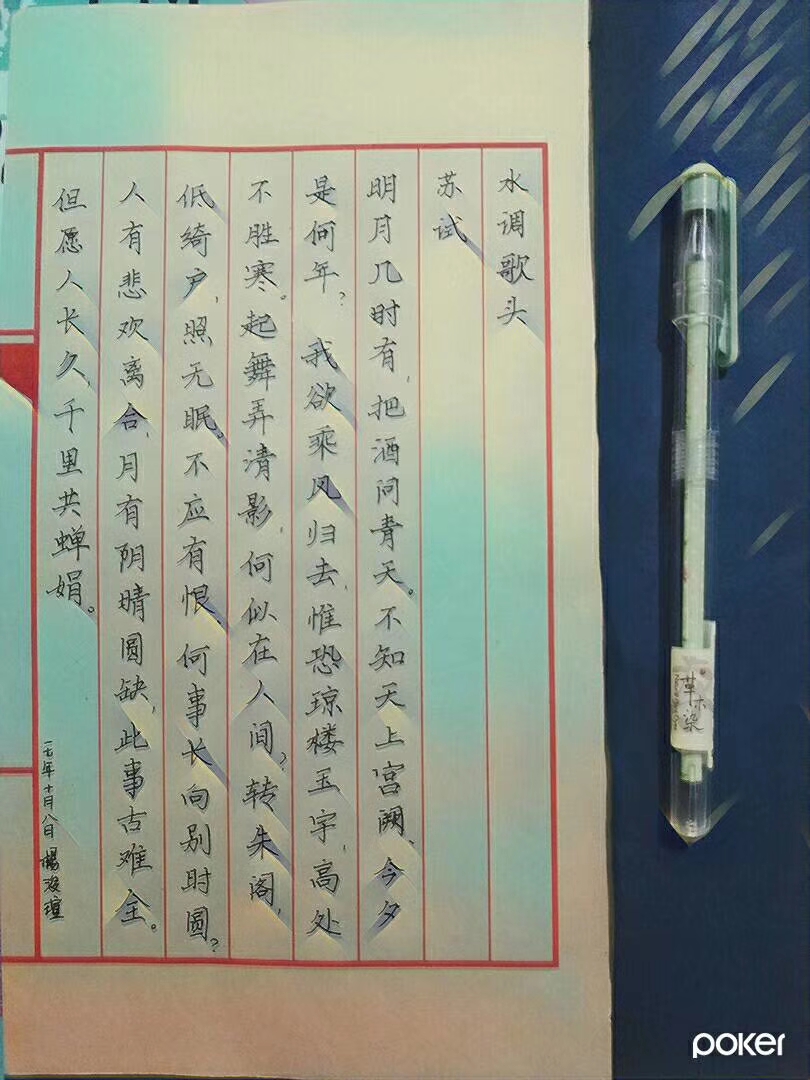 水调歌头
苏试
明月几时有,把酒问青天。不知天上宫阙、今夕
是何年? 我欲乘风归去,惟恐琼楼玉宇,高处
不胜寒。起舞弄清影,何似在人间?转朱阁,
低绮户,照无眠。不应有恨、何事长向别时圆?
人有悲欢离合,月有阴晴圆缺,此事古难全。
但愿人长久,千里共蝉娟。
一七年十月八日 楊
草木染
poker